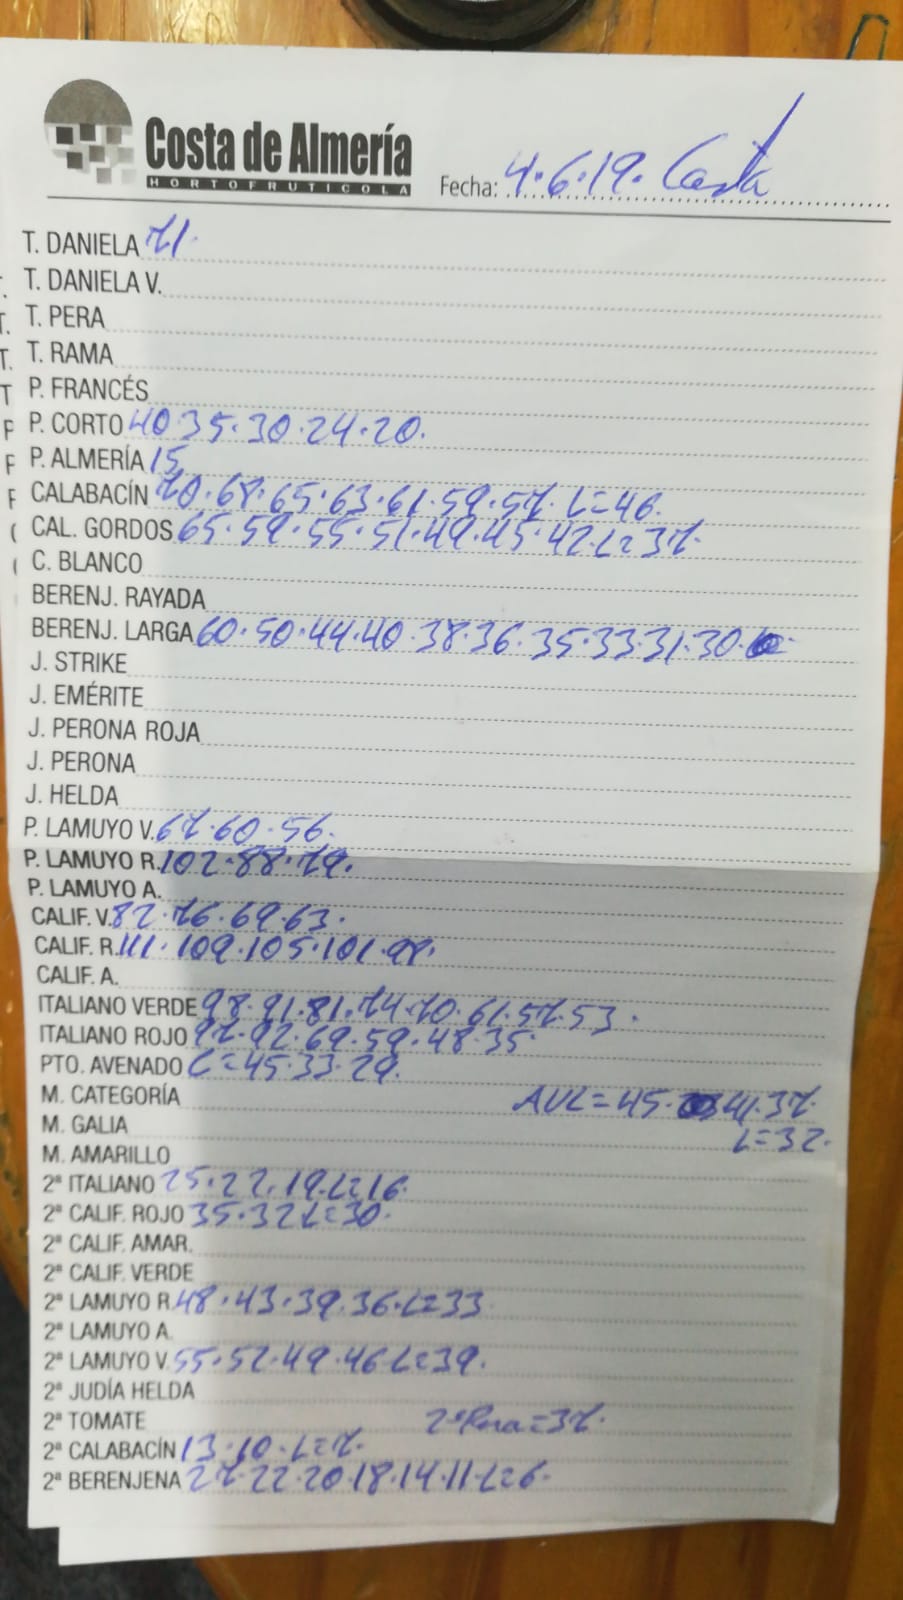 Costa de Almería
HORTOFRUTICOLA
Fecha: 4.6.19. Costa
T. DANIELA 71.
T. DANIELA V.
T. PERA
T. RAMA
P. FRANCÉS
P. CORTO 40.35.30.24.20.
P. ALMERÍA 15
CALABACÍN 70.68.65.63.61.59.57. L=46.
CAL. GORDOS 65.59.55.51.49.45.42.L=37.
C. BLANCO
BERENJ. RAYADA
BERENJ. LARGA 60.50.44.40.38.36.35.33.31.30.
J. STRIKE
J. EMÉRITE
J. PERONA ROJA
J. PERONA
J. HELDA
P. LAMUYO V. 67.60.56.
P. LAMUYO R. 102.88.79.
P. LAMUYO A.
CALIF. V. 82.76.69.63.
CALIF. R. 111.109.105.101.98.
CALIF. A.
ITALIANO VERDE 98.91.81.74.70.61.57.53.
ITALIANO ROJO 97.92.69.59.48.35.
PTO. AVENADO L=45.33.29.
M. CATEGORÍA AVL=45. 41.37.
M. GALIA L=32.
M. AMARILLO
2ª ITALIANO 25.22.19.L=16.
2ª CALIF. ROJO 35.32 L=30.
2ª CALIF. AMAR.
2ª CALIF. VERDE
2ª LAMUYO R. 48.43.39.36.L=33
2ª LAMUYO A.
2ª LAMUYO V. 55.52.49.46 L=39.
2ª JUDÍA HELDA
2ª TOMATE 2ª Pera=37.
2ª CALABACÍN 13.10.L=7.
2ª BERENJENA 27.22.20.18.14.11.L=6.